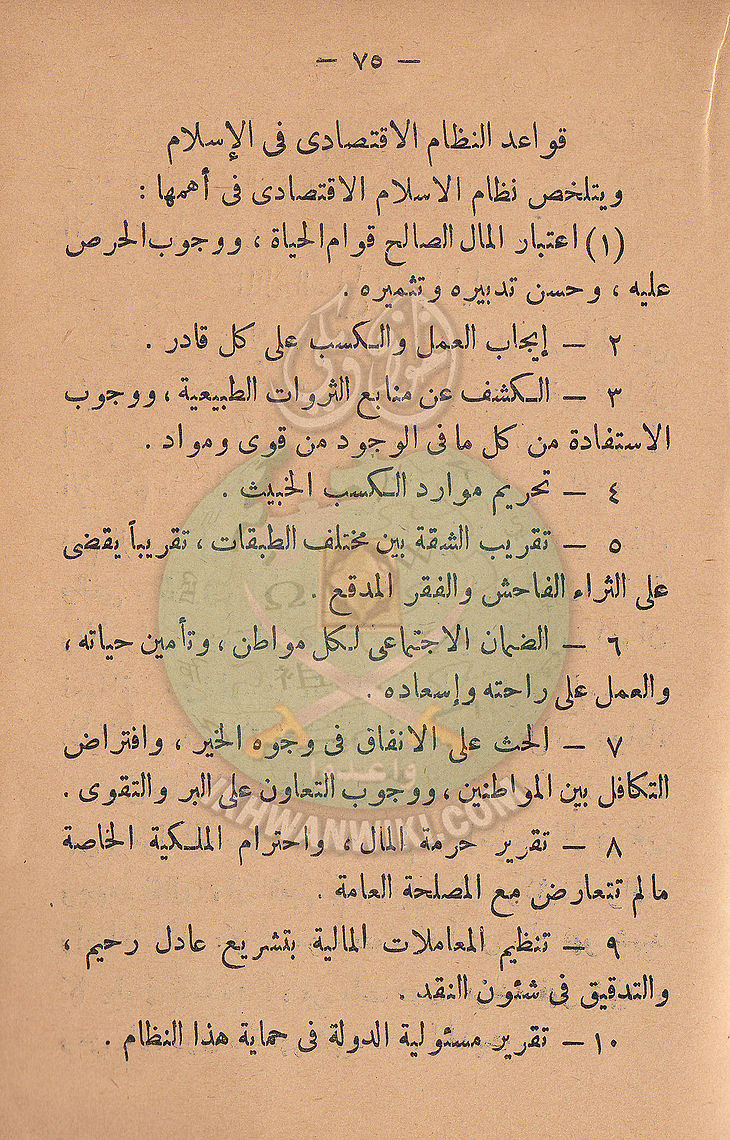 — ٧٥ —
قواعد النظام الاقتصادى فى الإسلام
ويتلخص نظام الاسلام الاقتصادى فى أهمها :
(١) اعتبار المال الصالح قوام الحياة ، ووجوب الحرص
عليه ، وحسن تدبيره وتثميره .
٢ — إيجاب العمل والكسب على كل قادر .
٣ — الكشف عن منابع الثروات الطبيعية ، ووجوب
الاستفادة من كل ما فى الوجود من قوى ومواد .
٤ — تحريم موارد الكسب الخبيث .
٥ — تقريب الشقة بين مختلف الطبقات ، تقريباً يقضى
على الثراء الفاحش والفقر المدقع .
٦ — الضمان الاجتماعى لكل مواطن ، وتأمين حياته ،
والعمل على راحته وإسعاده .
٧ — الحث على الانفاق فى وجوه الخير ، وافتراض
التكافل بين المواطنين ، ووجوب التعاون على البر والتقوى .
٨ — تقرير حرمة المال ، واحترام الملكية الخاصة
مالم تتعارض مع المصلحة العامة .
٩ — تنظيم المعاملات المالية بتشريع عادل رحيم ،
والتدقيق فى شئون النقد .
١٠ — تقرير مسئولية الدولة فى حماية هذا النظام .
واعدوا
IKHWANWIKI.COM